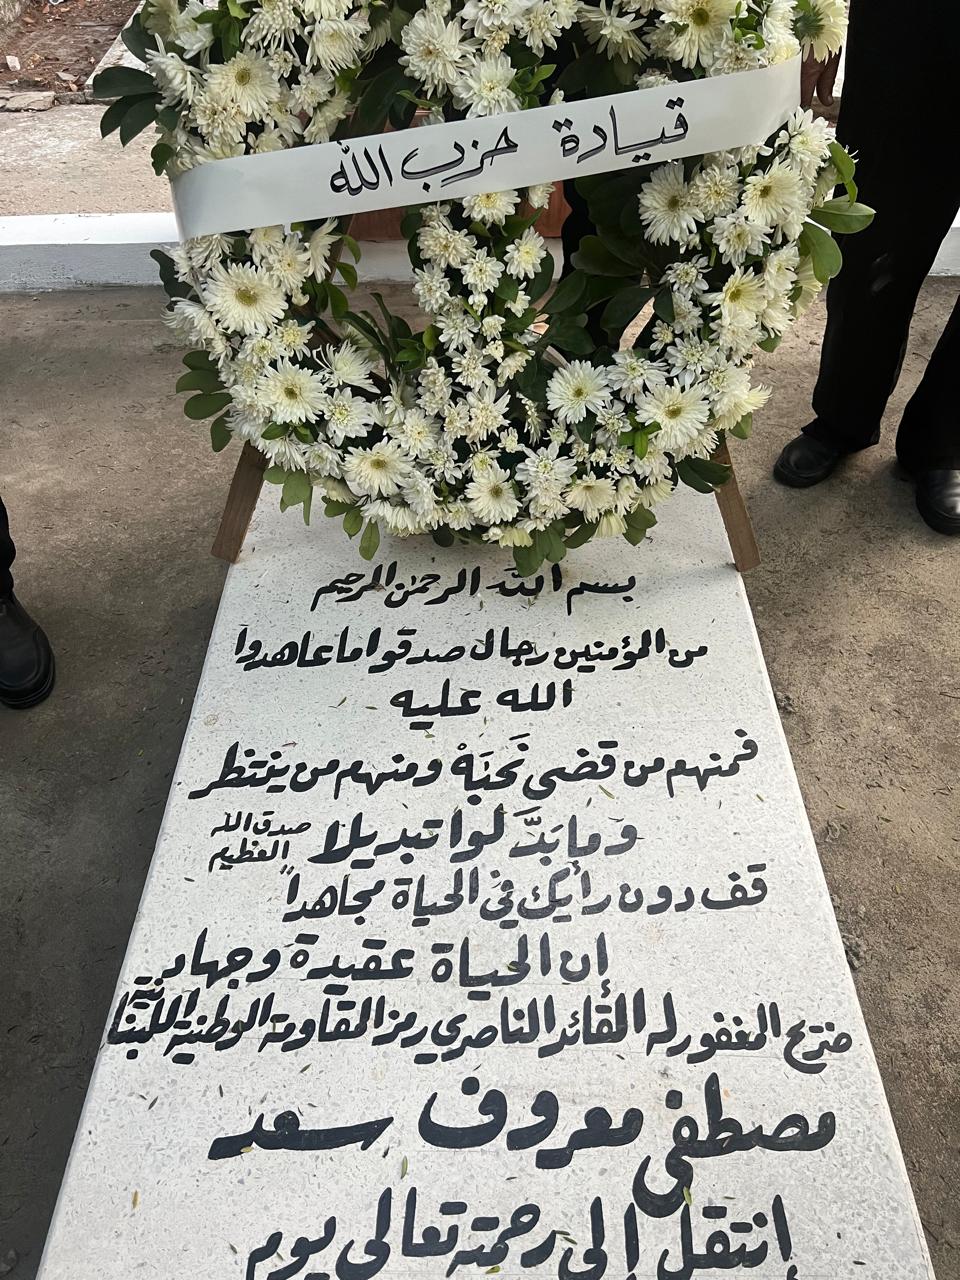 قيادة حزب الله
بسم الله الرحمن الرحيم
من المؤمنين رجال صدقوا ما عاهدوا
الله عليه
فمنهم من قضى نَحبَهْ ومنهم من ينتظر
وما بَدَّلوا تبديلا صدق الله العظيم
قف دون رأيك في الحياة مجاهداً
إن الحياة عقيدة وجهاد
ضريح المغفور له القائد الناصري رمز المقاومة الوطنية اللبنانية
مصطفى معروف سعد
إنتقل إلى رحمته تعالى يوم